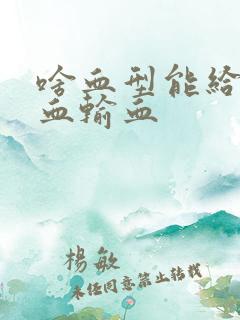 啥血型能给
血输血
杨敏
未经同意禁止转载